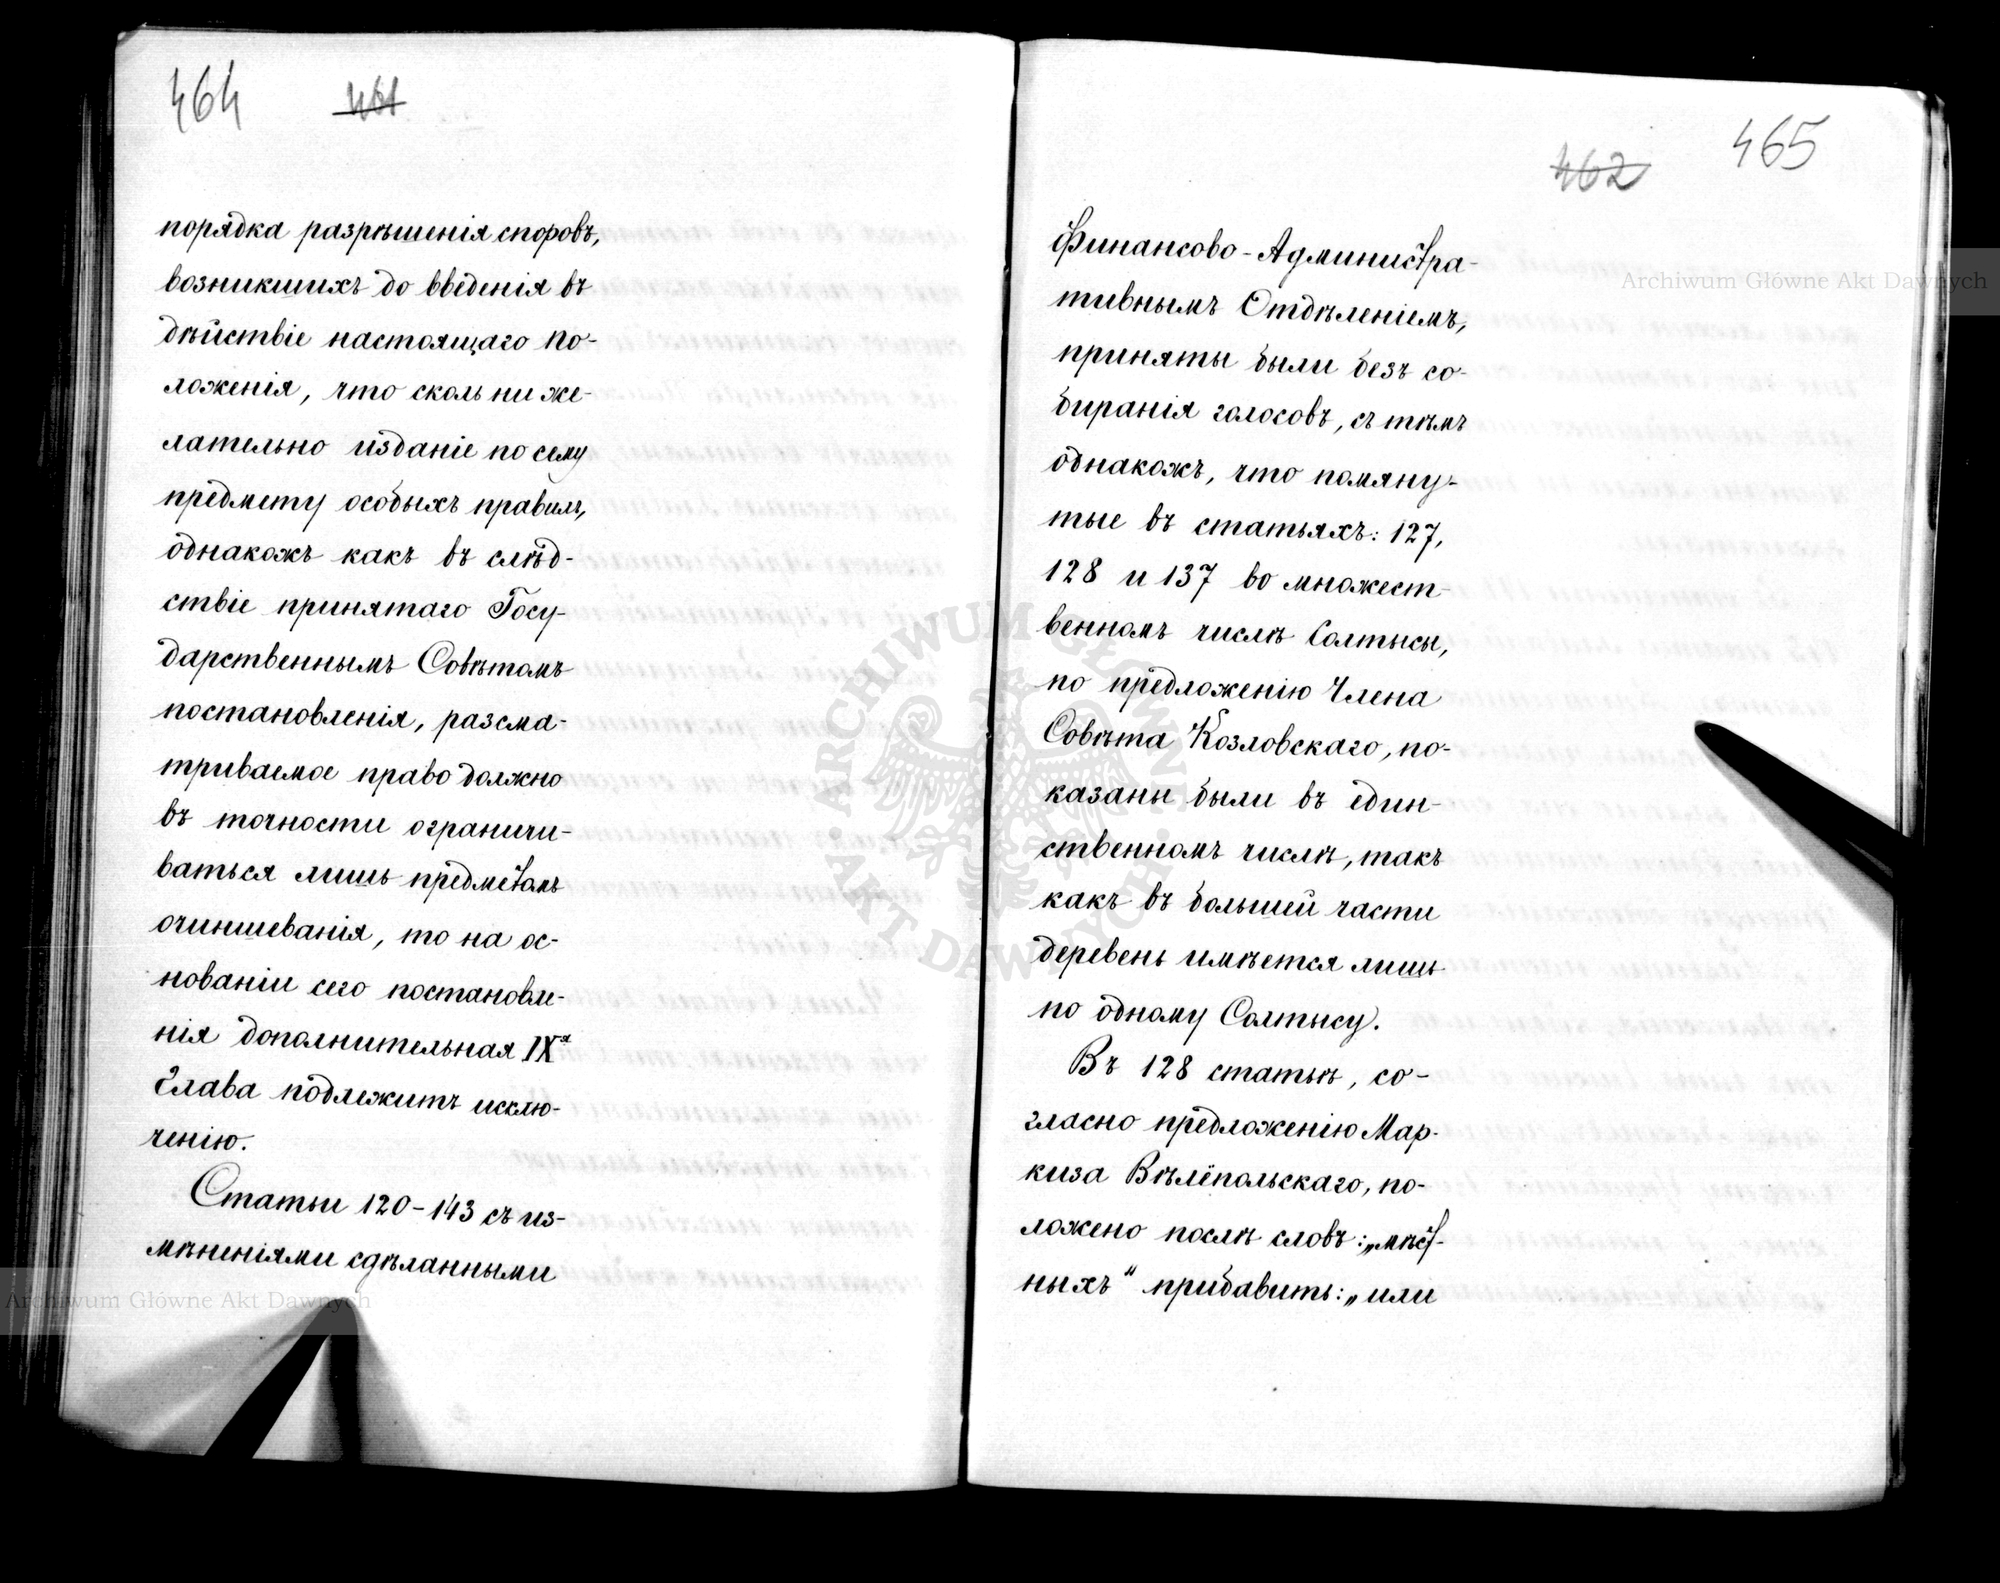 464 461
порядка разрѣшенія споровъ,
возникшихъ до введенія въ
дѣйствіе настоящаго По-
ложенія, что сколь ни же-
лательно изданіе по сему
предмету особыхъ правилъ,
однакожъ какъ въ слѣд-
ствіе принятаго Госу-
дарственнымъ Совѣтомъ
постановленія, разсма-
триваемое право должно
въ точности ограничи-
ваться лишь предметомъ
очиншеванія, то на ос-
нованіи сего постановле-
нія дополнительная IXя
Глава подлежитъ исклю-
ченію.
Статьи 120-143 съ из-
мѣненіями сдѣланными
462 465
Финансово-Администра-
тивнымъ Отдѣленіемъ,
приняты были безъ со-
биранія голосовъ, съ тѣмъ
однакожъ, что помяну-
тые въ статьяхъ: 127,
128 и 137 во множест-
венномъ числѣ Солтысы,
по предложенію Члена
Совѣта Козловскаго, по-
казаны были въ един-
ственномъ числѣ, такъ
какъ въ большей части
деревень имѣется лишь
по одному Солтысу.
Въ 128 статьѣ, со-
гласно предложенію Мар-
киза Вѣлёпольскаго, по-
ложено послѣ словъ: „мѣст-
ныхъ“ прибавить: „или
Archiwum Główne Akt Dawnych
Archiwum Główne Akt Dawnych
ARCHIWUM GŁÓWNE AKT DAWNYCH